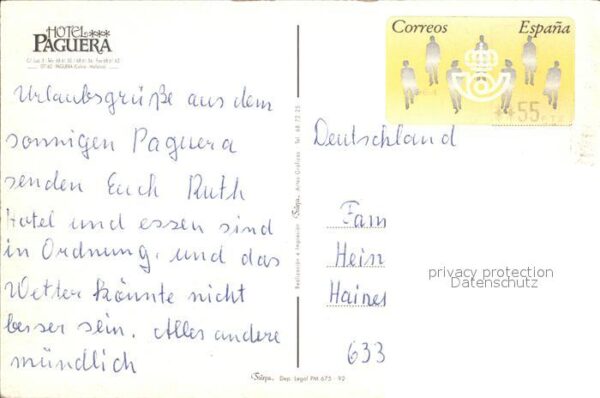 HOTEL ***
PAGUERA
Correos España
++55 PTS
Urlaubsgrüße aus dem
sonnigen Paguera
senden Euch Ruth
Hotel und essen sind
in Ordnung, und das
Wetter könnte nicht
besser sein. Alles andere
mündlich
Realización e Impresión Sirpa. Artes Gráficas Tel. 68 72 25
Deutschland
Fam
Hein
Haines
633
privacy protection
Datenschutz
Sirpa. Dep. Legal PM 675 - 92